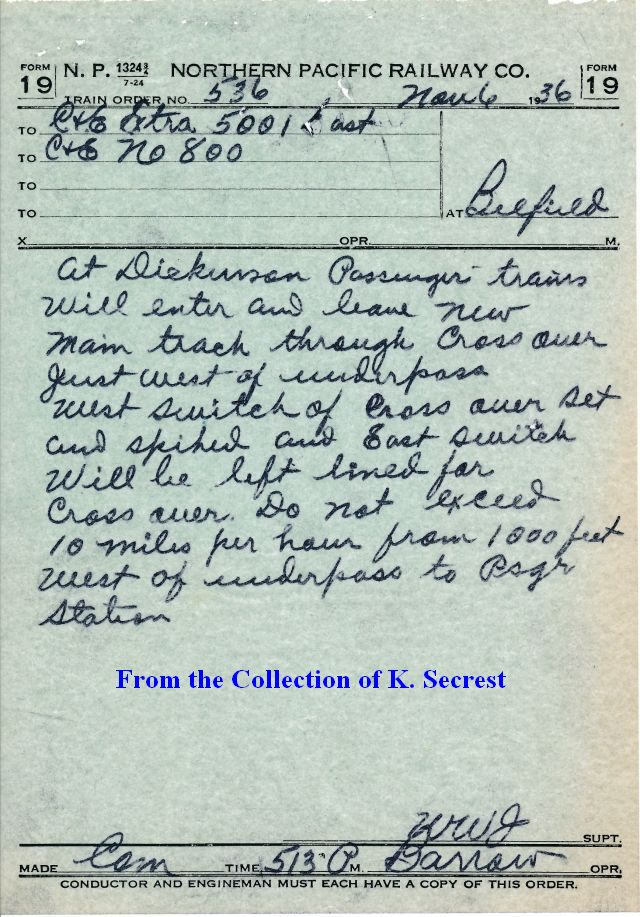 FORM 19 N. P. 1324½ 7-24 NORTHERN PACIFIC RAILWAY CO. FORM 19
TRAIN ORDER NO. 536 Nov 6 1936
TO C&E Extra 5001 East
TO C&E No 800
TO
TO AT Belfield
X OPR. M.
At Dickinson Passenger trains
Will enter and leave new
Main track through Cross over
Just West of underpass
West Switch of Cross over set
and spiked and East switch
Will be left lined for
Cross over. Do not exceed
10 miles per hour from 1000 feet
West of underpass to Psgr
Station
From the Collection of K. Secrest
WWJ SUPT.
MADE Com TIME 513 P M. Barrow OPR.
CONDUCTOR AND ENGINEMAN MUST EACH HAVE A COPY OF THIS ORDER.